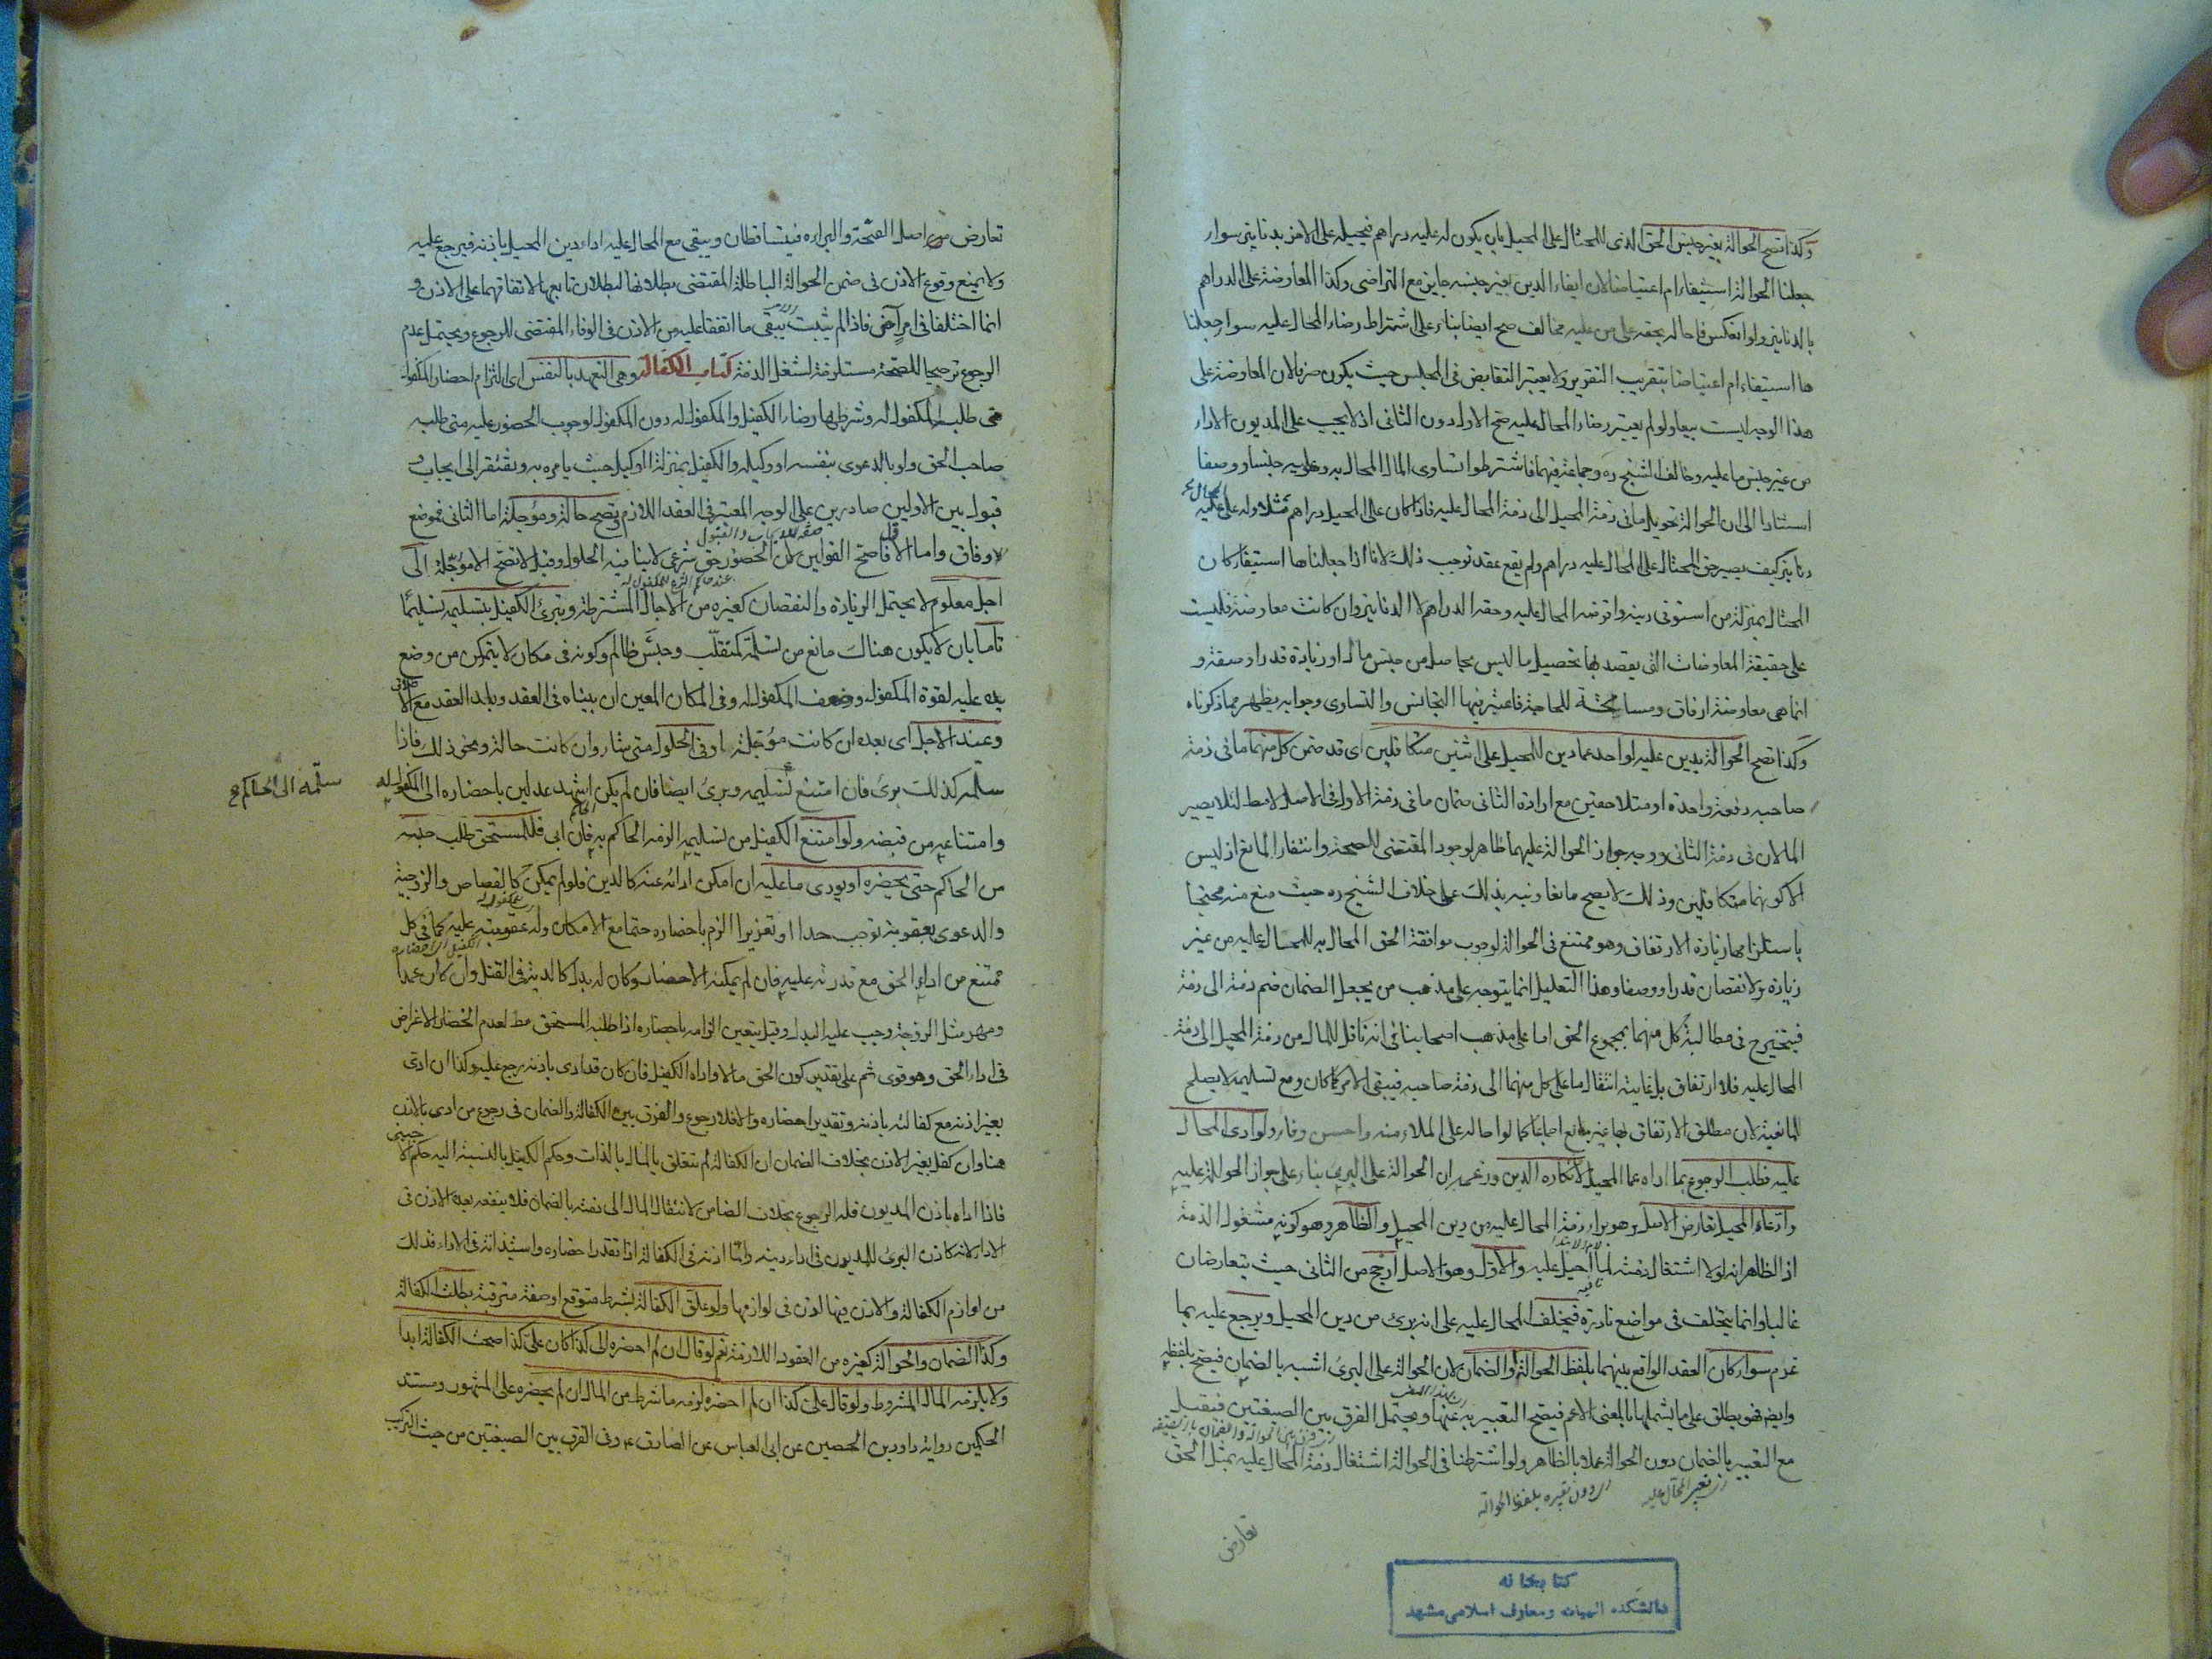 وكذا تصح الحوالة بغير جنس الحق الذي للمحتال على المحيل بان يكون له عليه دراهم فيحيله على الاخر بدنانير سواء
جعلنا الحوالة استيفاء ام اعتياضا لان ايفاء الدين بغير جنسه جايز مع التراضي وكذا المعاوضة على الدراهم
بالدنانير ولو انعكس فاحاله بحقه على من عليه مخالف صح ايضا بناء على اشتراط رضاء المحال عليه سواء جعلنا
ها استيفاء ام اعتياضا بتقريب التقرير ولا يعتبر التقابض في المجلس حيث يكون صرفا لان المعاوضة على
هذا الوجه ليست بيعا ولو لم يعتبر رضاء المحال عليه صح الاول دون الثاني اذ لا يجب على المديون الاداء
من غير جنس ما عليه وخالف الشيخ ره وجماعة فيهما فاشترطوا تساوي المال المحال به وعليه جنسا ووصفا
استنادا الى ان الحوالة تحويل ما في ذمة المحيل الى ذمة المحال عليه فاذا كان على المحيل دراهم مثلا وله على المحال عليه
دنانير كيف يصير حق المحتال على المحال عليه دراهم ولم يقع عقد توجب ذلك لانا اذا جعلناها استيفاء كان
المحتال بمنزلة من استوفى دينه واقرضه المحال عليه وحقه الدراهم لا الدنانير وان كانت معاوضة فليست
على حقيقة المعاوضات التي يقصد بها تحصيل ما ليس بحاصل من جنس مال او زيادة قدر او صفة و
انما هي معاوضة ارفاق ومسامحة للحاجة فاعتبر فيها التجانس والتساوي وجوابه يظهر مما ذكرناه
وكذا تصح الحوالة بدين عليه لواحد عما دين للمحيل على اثنين متكافلين اى قد ضمن كل منهما ما في ذمة
صاحبه دفعة واحدة او متلاحقين مع ارادة الثاني ضمان ما في ذمة الاول في الاصل لا مط لئلا يصير
المالان في ذمة الثاني ووجه جواز الحوالة عليهما ظاهر لوجود المقتضي للصحة وانتفاء المانع اذ ليس
الا كونهما متكافلين وذلك لا يصح مانعا ونبه بذلك على خلاف الشيخ ره حيث منع منه محتجا
باستلزامها زيادة الارتفاق وهو ممتنع في الحوالة لوجوب موافقة الحق المحال به للمحال عليه من غير
زيادة ولا نقصان قدرا ووصفا وهذا التعليل انما يتوجه على مذهب من يجعل الضمان ضم ذمة الى ذمة
فيتخير في مطالبة كل منهما بمجموع الحق اما على مذهب اصحابنا في انه ناقل للمال من ذمة المحيل الى ذمة
المحال عليه فلا ارتفاق بل غايته انتقال ما على كل منهما الى ذمة صاحبه فيبقى الامر كما كان ومع تسليمه لا يصلح
للمانعية لان مطلق الارتفاق بها غير مانع اجماعا كما لو احاله على الملاء منه واحسن وفاء ولو ادى المحال
عليه فطلب الرجوع بما اداه عما المحيل لانكاره الدين وزعمه ان الحوالة على البرئ بناء على جواز الحوالة عليه
وادعاه المحيل تعارض الاصل وهو براءة ذمة المحال عليه من دين المحيل والظاهر وهو كونه مشغول الذمة
اذ الظاهر انه لولا اشتغال ذمته لما احيل عليه والاول وهو الاصل ارجح من الثاني حيث يتعارضان
غالبا وانما يتخلف في مواضع نادرة فيحلف المحال عليه على انه برئ من دين المحيل ويرجع عليه بما
غرم سواء كان العقد الواقع بينهما بلفظ الحوالة او الضمان لان الحوالة على البرئ اشبه بالضمان فيصح بلفظه
وايض فهو يطلق على ما يشملها بالمعنى الاعم فيصح التعبير به عنها ويحتمل الفرق بين الصيغتين فيقبل
مع التعبير بالضمان دون الحوالة عملا بالظاهر ولو اشترطنا في الحوالة اشتغال ذمة المحال عليه بمثل الحق
دون تعبيره بلفظ الحوالة
تعارض
كتابخانه
دانشكده الهيات ومعارف اسلامى مشهد
تعارض اصل الصحة والبراءة فيتساقطان ويبقى مع المحال عليه اداء دين المحيل باذنه فيرجع عليه
ولا يمنع وقوع الاذن في ضمن الحوالة الباطلة المقتضي بطلانها لبطلان تابعها لاتفاقهما على الاذن و
انما اختلفا في امر آخر فاذا لم يثبت يبقى ما اتفقا عليه من الاذن في الوفاء المقتضي للرجوع ويحتمل عدم
الرجوع ترجيحا للصحة مستلزمة لشغل الذمة كتاب الكفالة وهي التعهد بالنفس اى التزام احضار المكفول
متى طلب المكفول له وشرطها رضاء الكفيل والمكفول له دون المكفول لوجوب الحضور عليه متى طلبه
صاحب الحق ولو بالدعوى بنفسه او وكيله والكفيل بمنزلة الوكيل حيث يامره به وتفتقر الى ايجاب و
قبول بين الاولين صادرين على الوجه المعتبر في العقد اللازم وتصح حالة ومؤجلة اما الثاني فموضع
وفاق واما الاول فاصح القولين لان الحضور حق شرعي لا ينافيه الحلول وقيل لا تصح الا مؤجلة الى
اجل معلوم لا يحتمل الزيادة والنقصان كغيره من الاجال المشترطة ويبرئ الكفيل بتسليمه تسليما
تاما بان لا يكون هناك مانع من تسلمه كمتغلب وحبس ظالم وكونه في مكان لا يتمكن من وضع
يده عليه لقوة المكفول وضعف المكفول له وفي المكان المعين ان بيناه في العقد وبلد العقد مع الاطلاق
وعند الاجل اى بعده ان كانت مؤجلة او في الحلول متى شاء وان كانت حالة ونحو ذلك فاذا
سلمه كذلك برئ فان امتنع تسليمه وبرئ ايضا فان لم يكن اشهد عدلين باحضاره الى المكفول له
سلمه الى الحاكم
وامتناعه من قبضه ولو امتنع الكفيل من تسليمه الزمه الحاكم به فان ابى فللمستحق طلب حبسه
من الحاكم حتى يحضره او يودى ما عليه ان امكن اداؤه عنه كالدين فلو لم يمكن كالقصاص والزوجية
والدعوى بعقوبة توجب حدا او تعزيرا الزم باحضاره حتما مع الامكان وله عقوبته عليه كما في كل
ممتنع من اداء الحق مع قدرته عليه فان لم يمكنه الاحضار وكان له بدل كالدية في القتل وان كان عمدا
ومهر مثل الزوجة وجب عليه البدل وقيل يتعين الزامه باحضاره اذا طلبه المستحق مط لعدم انحصار الاغراض
في اداء الحق وهو قوى ثم على تقدير كون الحق مالا واداه الكفيل فان كان قد ادى باذنه رجع عليه وكذا ان ادى
بغير اذنه مع كفالته باذنه وتقدير احضاره والا فلا رجوع والفرق بين الكفالة والضمان في رجوع من ادى بالاذن
هنا وان كفل بغير الاذن بخلاف الضمان ان الكفالة لم يتعلق بالمال بالذات وحكم الكفيل بالنسبة اليه حكم الاجنبي
فاذا اداه باذن المديون فله الرجوع بخلاف الضامن لانتقال المال الى ذمته بالضمان فلا ينفعه بعده الاذن في
الاداء لانه كاذن البرئ للمديون في اداء دينه واما اذنه في الكفالة اذا تعذر احضاره واستيذانه في الاداء فذلك
من لوازم الكفالة والاذن فيها اذن في لوازمها ولو علق الكفالة بشرط متوقع او صفة مترقبة بطلت الكفالة
وكذا الضمان والحوالة كغيره من العقود اللازمة نعم لو قال ان لم احضره الى كذا كان على كذا صحت الكفالة ابدا
ولا يلزمه المال المشروط ولو قال على كذا ان لم احضره لزمه ما شرط من المال ان لم يحضره على المشهور ومستند
الحكمين رواية داود بن الحصين عن ابي العباس عن الصادق ع وفي الفرق بين الصيغتين من حيث التركيب